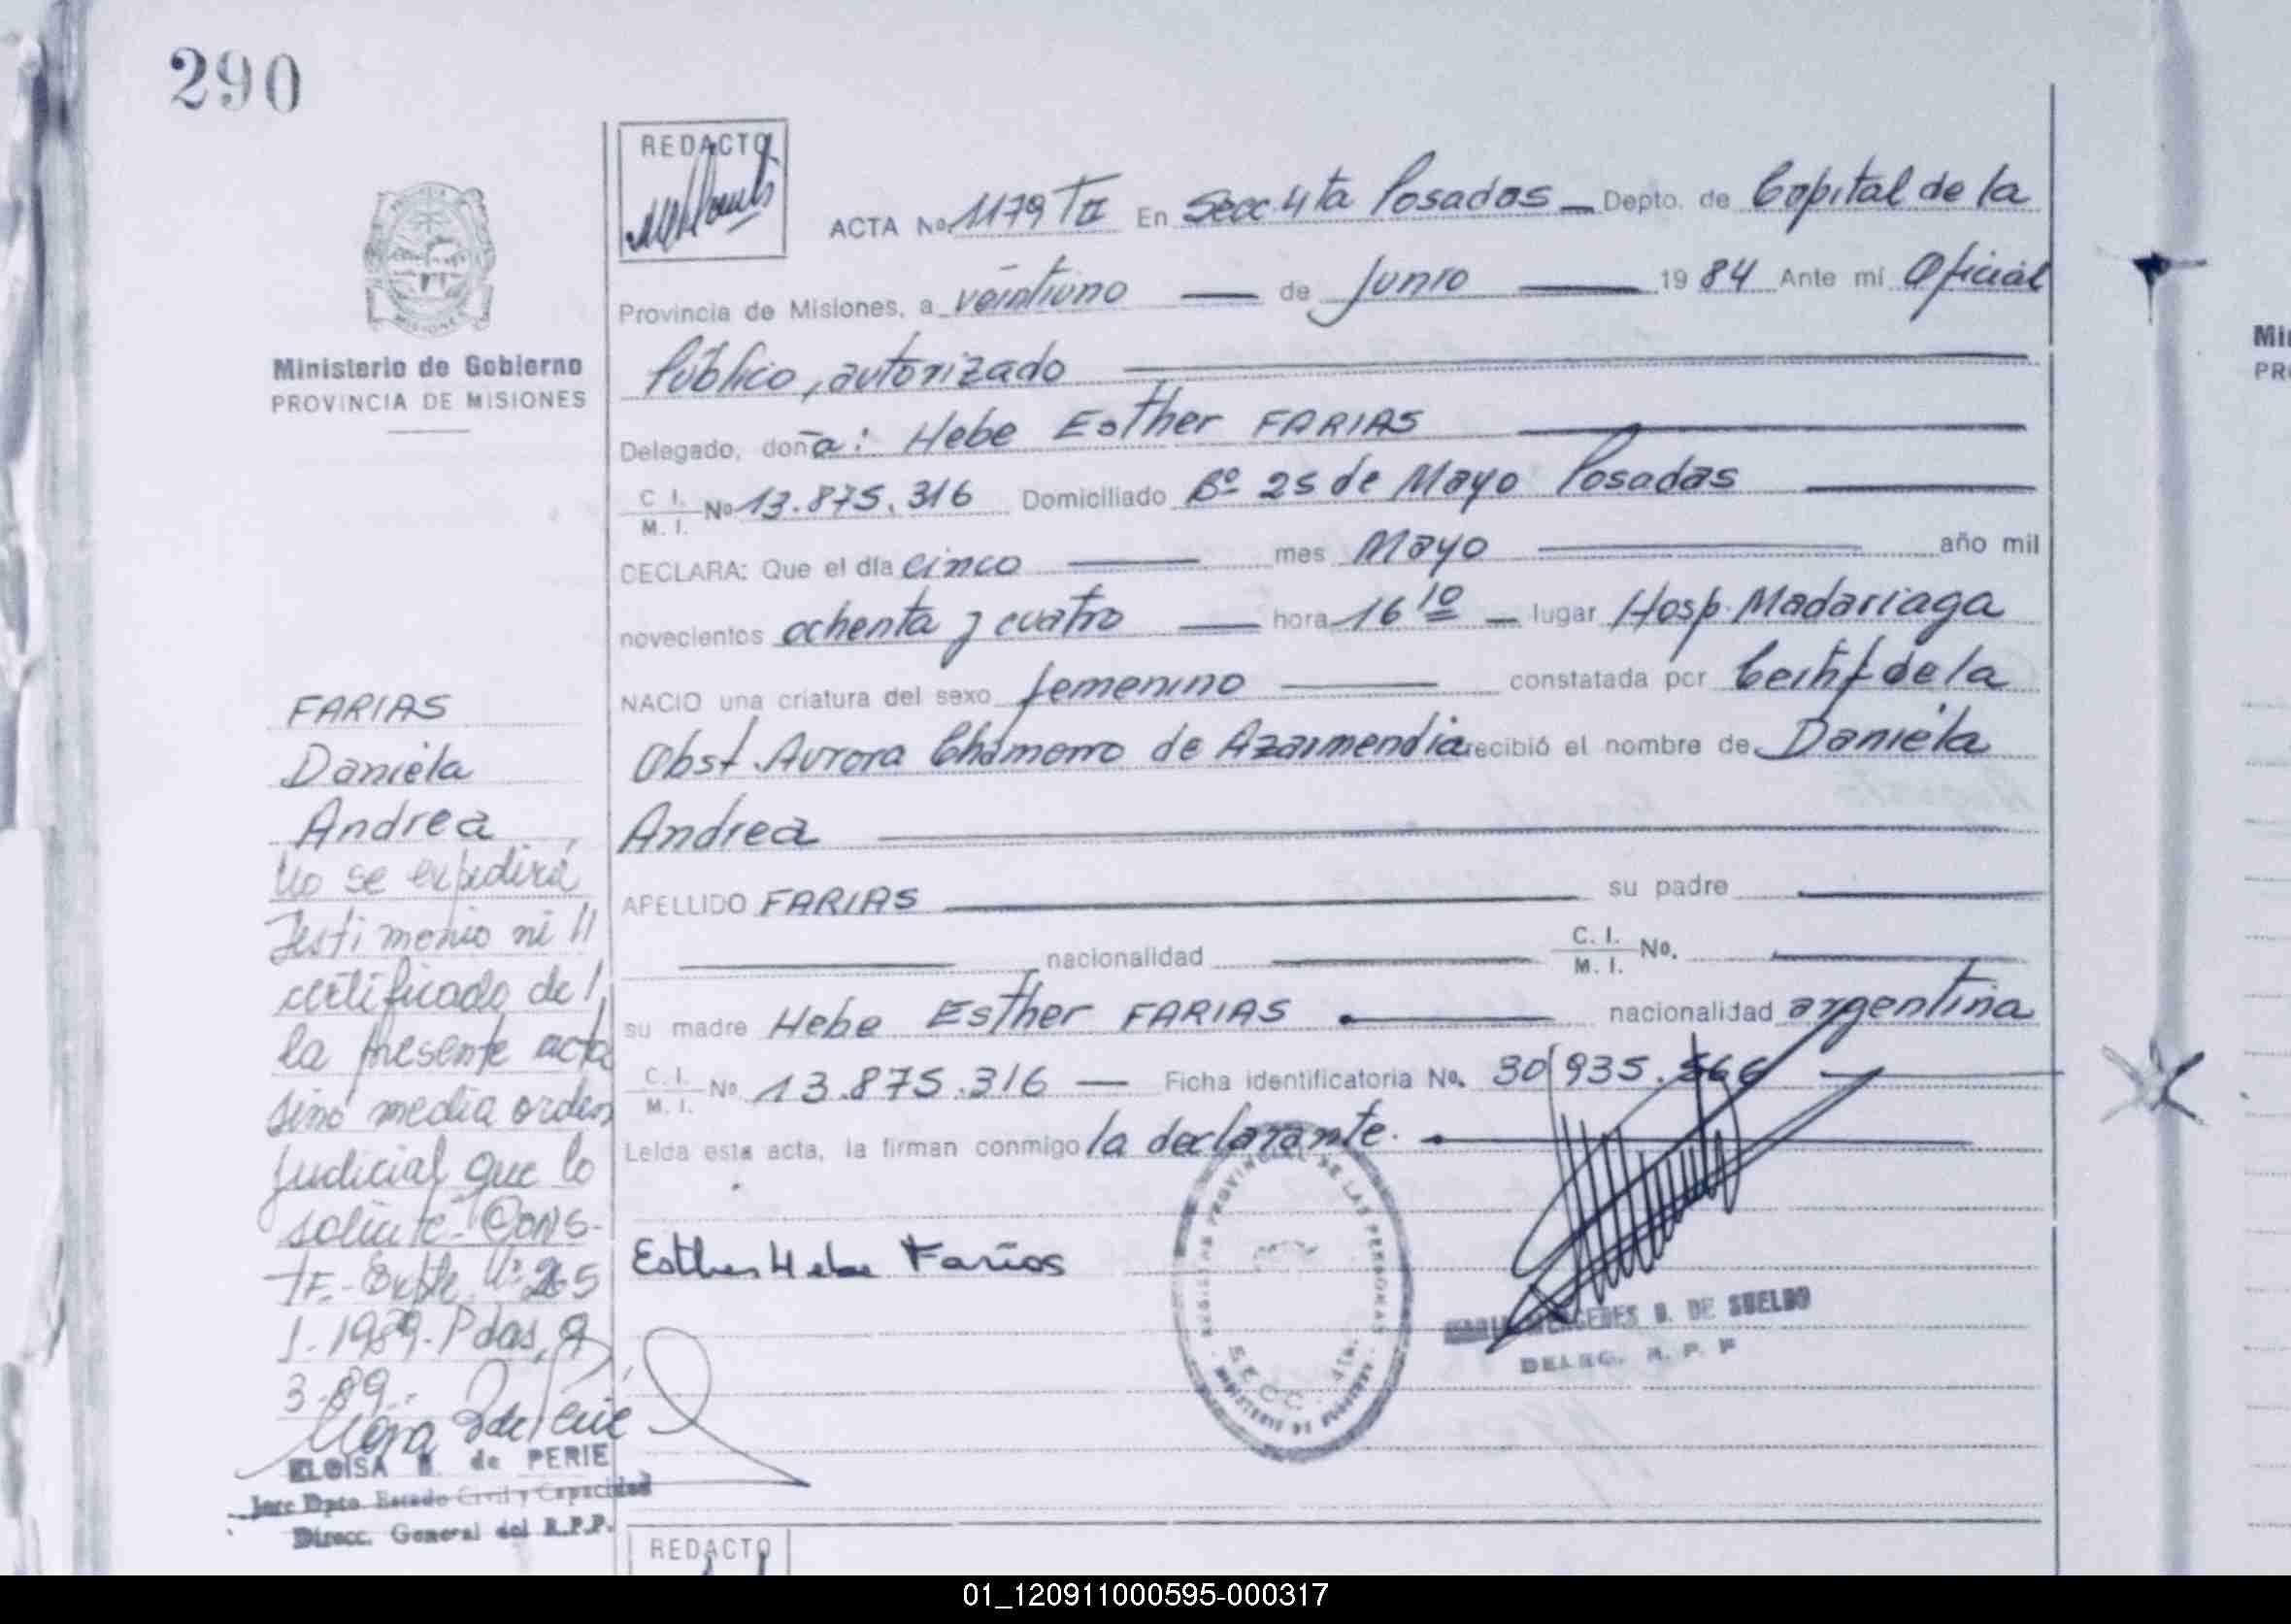 290
REDACTO
ACTA No. 1179 TII En Secc. 4ta Posadas Depto. de Capital de la
Provincia de Misiones, a veintiuno de Junio 1984 Ante mí Oficial
Público, autorizado
Delegado, doña: Hebe Esther FARIAS
C. I. / M. I. No 13.875.316 Domiciliado Bº 25 de Mayo Posadas
DECLARA: Que el día cinco mes Mayo año mil
novecientos ochenta y cuatro hora 16 10 lugar Hosp. Madariaga
NACIO una criatura del sexo femenino constatada por Certif de la
Obst. Aurora Chamorro de Azarmendia recibió el nombre de Daniela
Andrea
APELLIDO FARIAS su padre
nacionalidad C. I. / M. I. No.
su madre Hebe Esther FARIAS nacionalidad argentina
C. I. / M. I. No 13.875.316 Ficha identificatoria No. 30.935.566
Leída esta acta, la firman conmigo la declarante.
Esther Hebe Farias
REGISTRO PROVINCIAL DE LAS PERSONAS
SECC. 4ta.
MINISTERIO DE GOBIERNO
MARIA MERCEDES B. DE SUELDO
DELEG. R. P. P
Ministerio de Gobierno
PROVINCIA DE MISIONES
FARIAS
Daniela
Andrea
No se expedirá
Testimonio ni //
certificado de /
la presente acta
sino media orden
judicial que lo
solicite. CONS-
TE.- Expte. Nº 265
1.1989. Pdas, 9
3-89.-
ELOISA de PERIE
Jefe Dpto. Estado Civil y Capacidad
Direcc. General del R.P.P.
REDACTO
Mi
PR
01_120911000595-000317